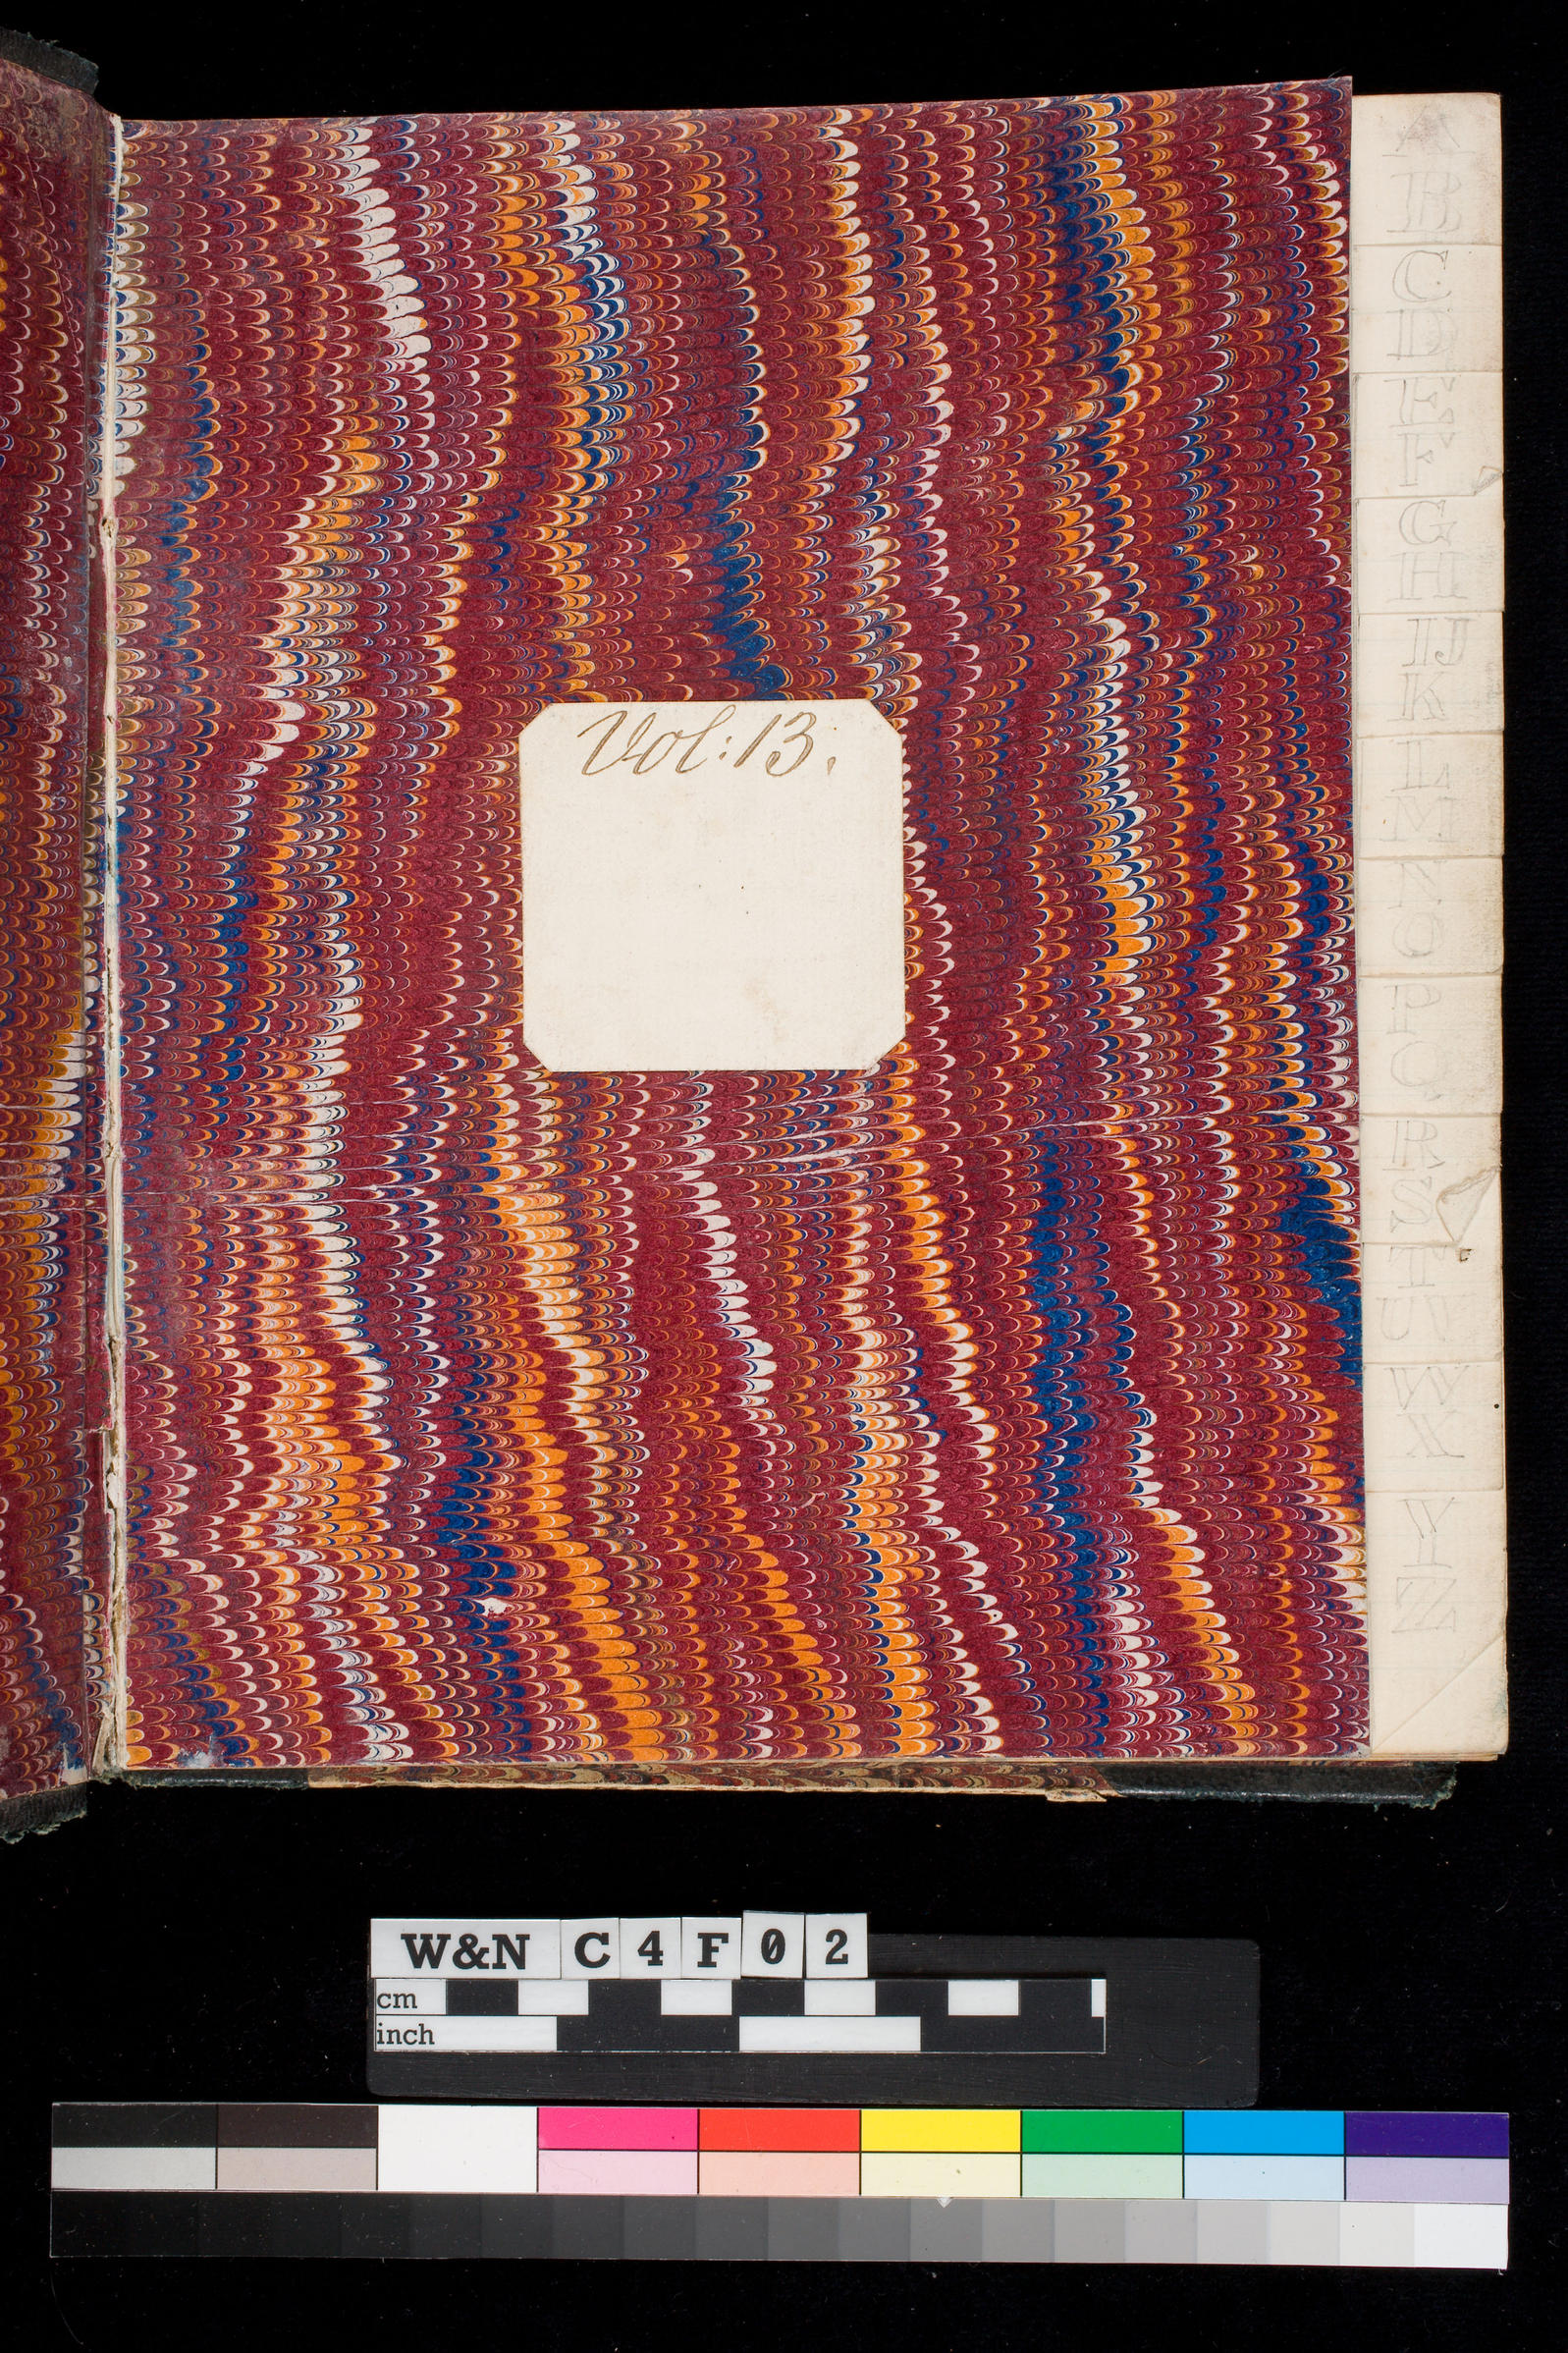 Vol: 13.
A
B
C
D
E
F
G
H
IJ
K
L
M
N
O
P
Q
R
S
T
UV
W
X
Y
Z
W&N C 4 F 0 2
cm
inch